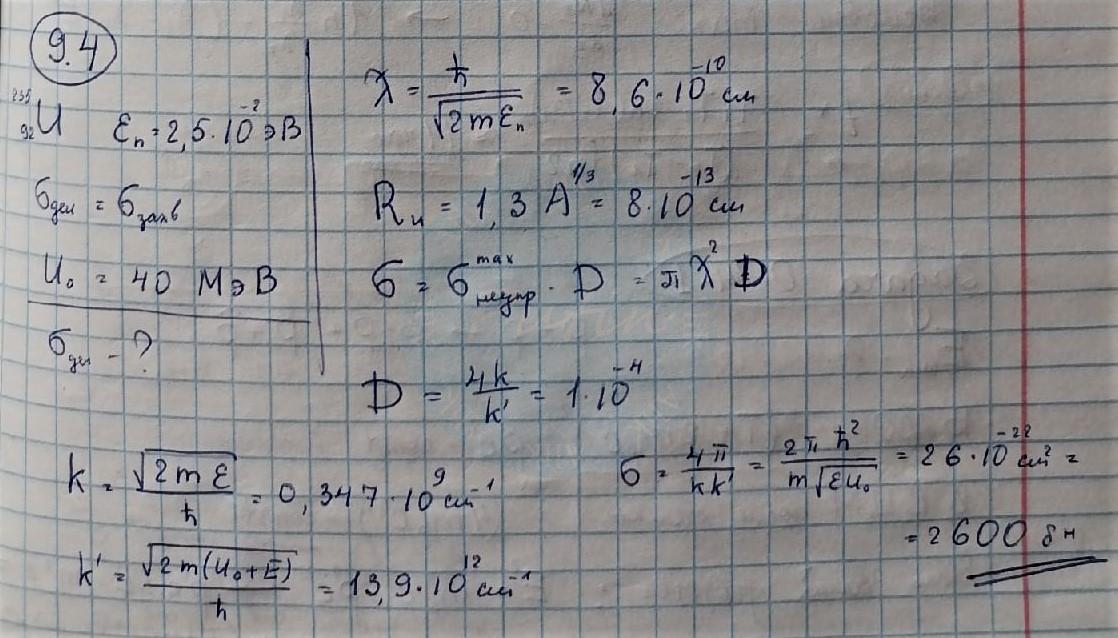 9.4
²³⁵₉₂U εₙ = 2,5·10⁻² эВ
σдел = σзахв
U₀ = 40 МэВ
σдел - ?
ƛ = ħ / √(2mεₙ) = 8,6·10⁻¹⁰ см
Rᵤ = 1,3 A^(1/3) = 8·10⁻¹³ см
σ = σ^max неупр · D = πƛ² D
D = 4k / k' = 1·10⁻⁴
k = √(2mε) / ħ = 0,347·10⁹ см⁻¹
k' = √(2m(U₀+E)) / ħ = 13,9·10¹² см⁻¹
σ = 4π / kk' = 2πħ² / m√(εU₀) = 26·10⁻²² см² =
= 2600 бн